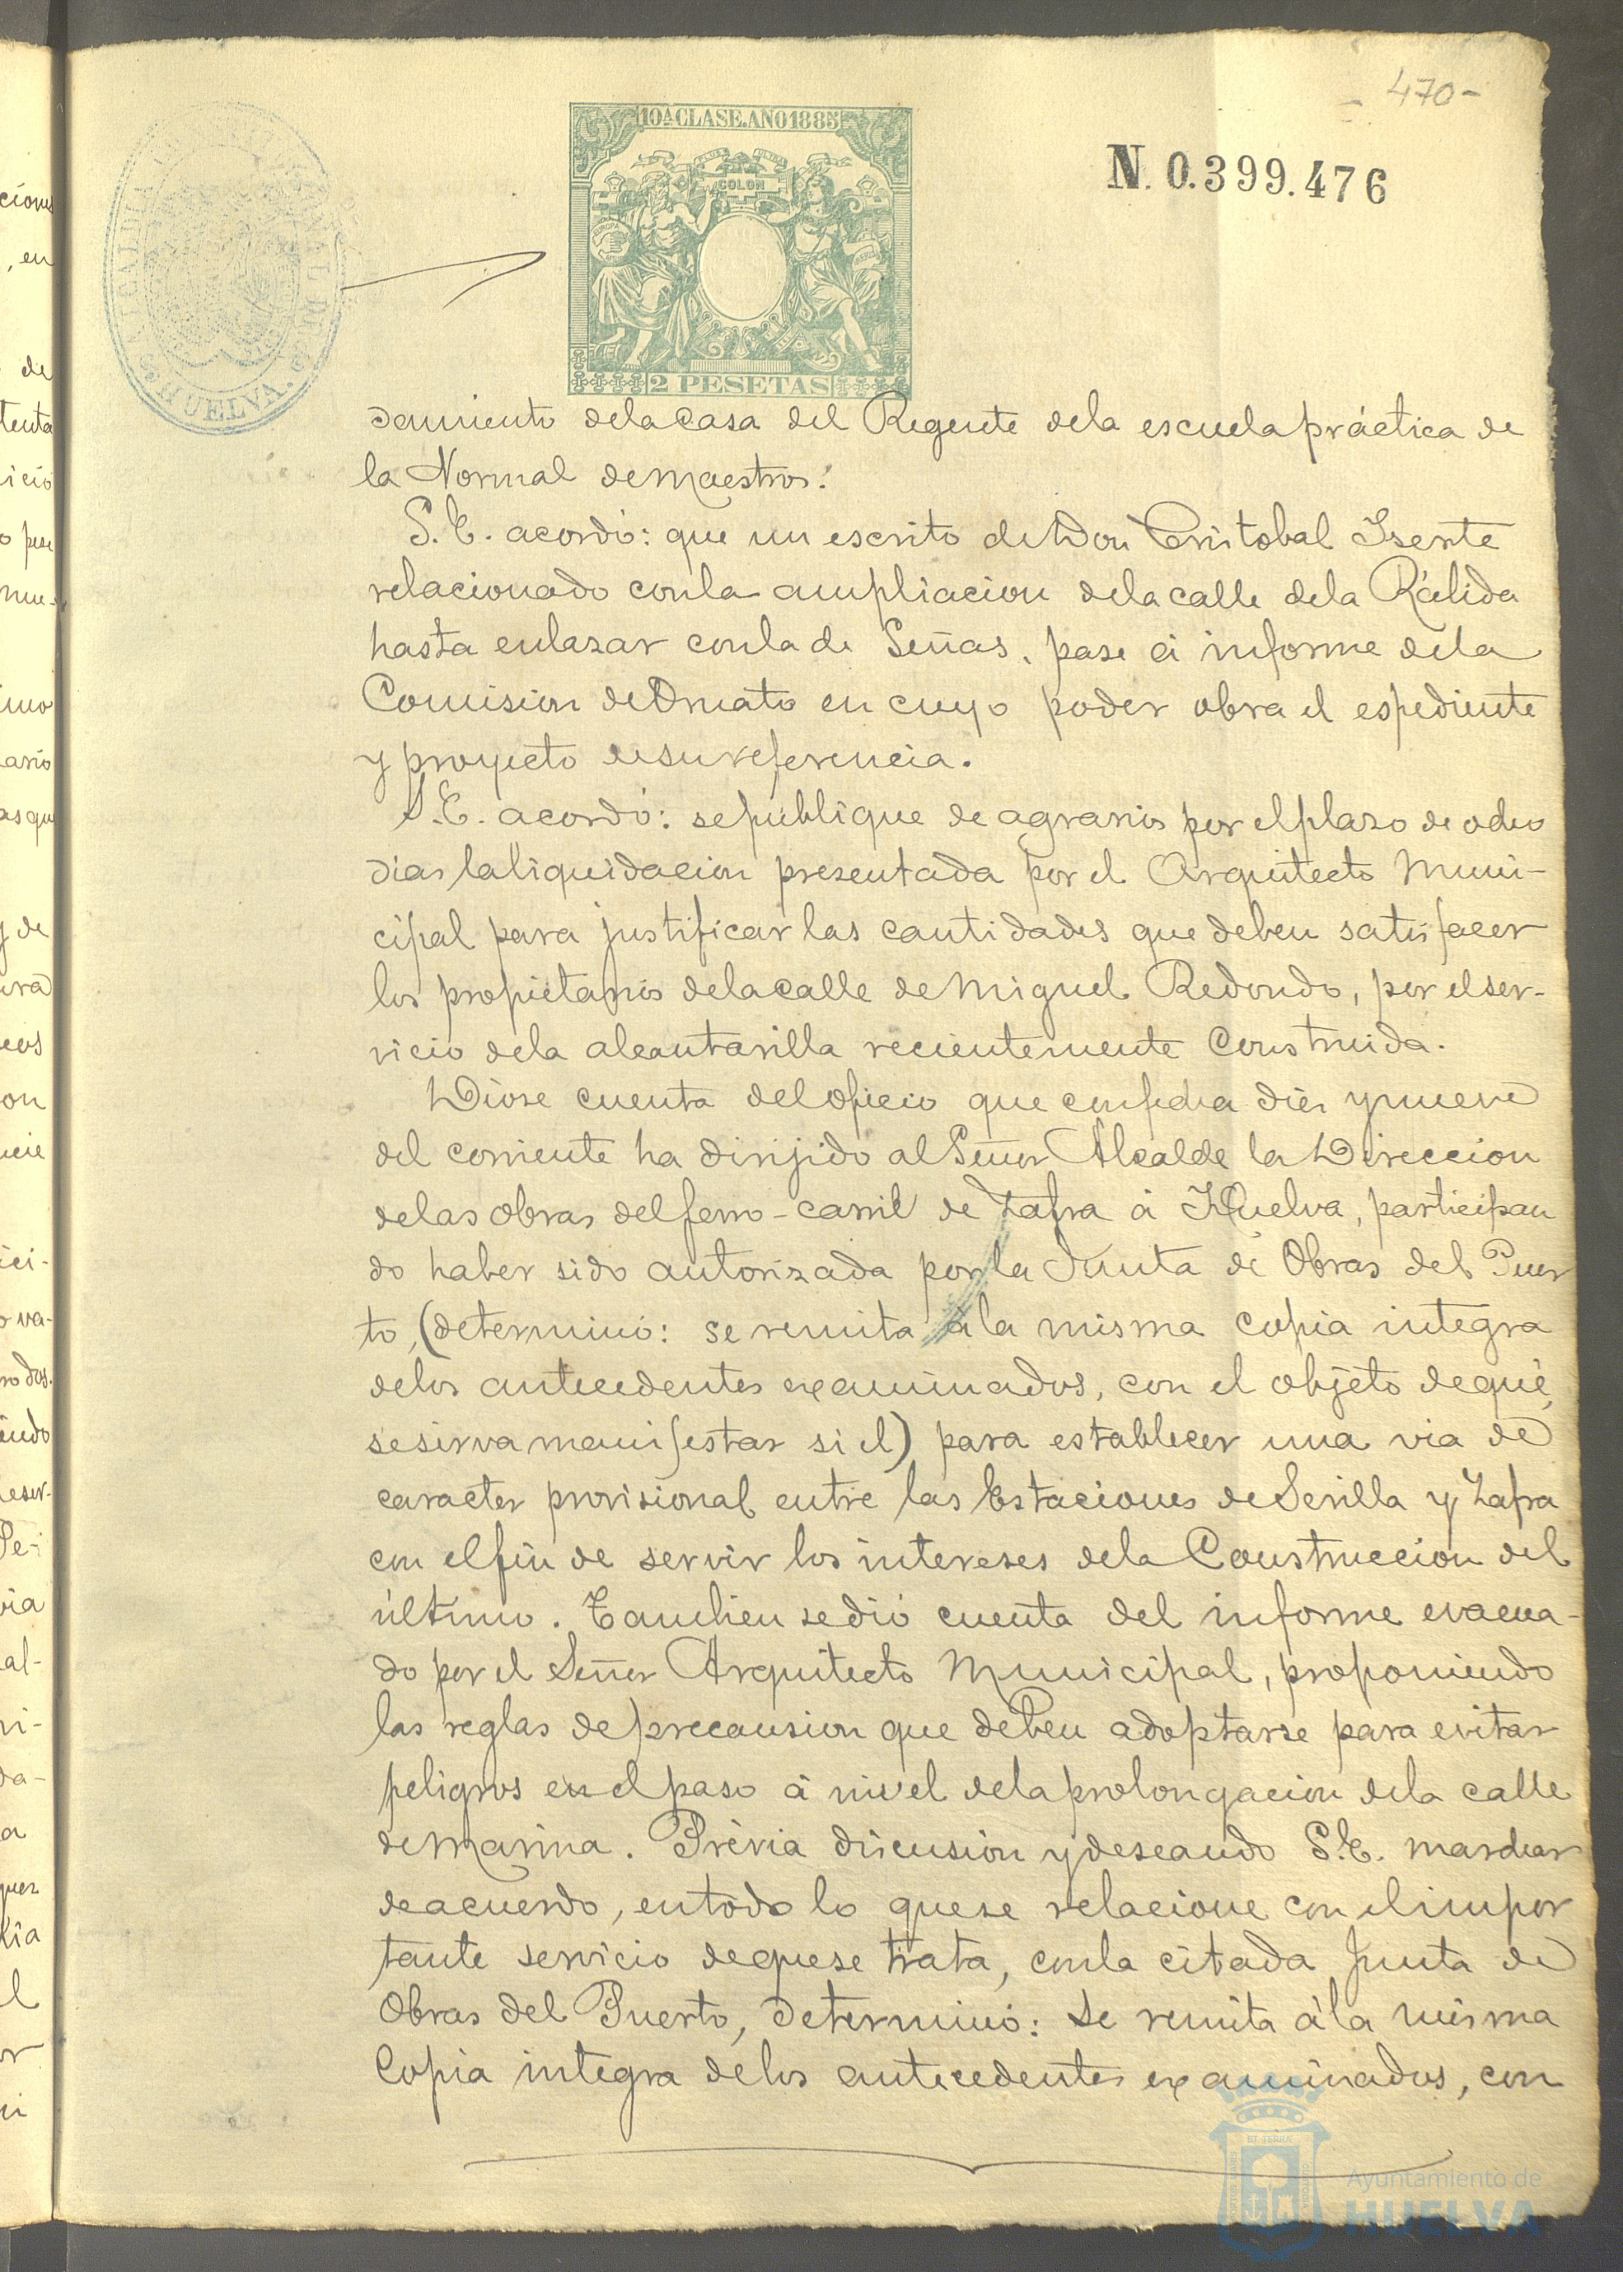 - 470-
10ª CLASE.AÑO1885
COLON
N. 0.399.476
2 PESETAS
HUELVA.
damiento dela casa del Regente dela escuela práctica de
la Normal de Maestros.
S. E. acordó: que un escrito de Don Cristobal Iserte
relacionado con la ampliacion dela calle dela Rábida
hasta enlazar con la de Señas, pase á informe dela
Comision de Ornato en cuyo poder obra el espediente
y proyecto de su referencia.
S. E. acordó: se publique de agravios por el plazo de ocho
dias la liquidacion presentada por el Arquitecto Muni-
cipal para justificar las cantidades que deben satisfacer
los propietarios dela calle de Miguel Redondo, por el ser-
vicio dela alcantarilla recientemente construida.
Diose cuenta del oficio que con fecha diez y nueve
del corriente ha dirijido al Señor Alcalde la Direccion
de las obras del ferro-carril de Zafra á Huelva, participan
do haber sido autorizada por la Junta de Obras del Puer
to, (determinó: se remita á la misma copia integra
delos antecedentes examinados, con el objeto de que
se sirva manifestar si el) para establecer una via de
caracter provisional entre las Estaciones de Sevilla y Zafra
con el fin de servir los intereses dela Construccion del
último. Tambien se dió cuenta del informe evacua-
do por el Señor Arquitecto Municipal, proponiendo
las reglas de precausion que deben adoptarse para evitar
peligros en el paso á nivel dela prolongacion dela calle
de Marina. Prévia discusion y deseando S. E. marchar
de acuerdo, en todo lo que se relacione con el impor
tante servicio de que se trata, con la citada Junta de
Obras del Puerto, determinó: se remita á la misma
copia integra de los antecedentes examinados, con
Ayuntamiento de
HUELVA